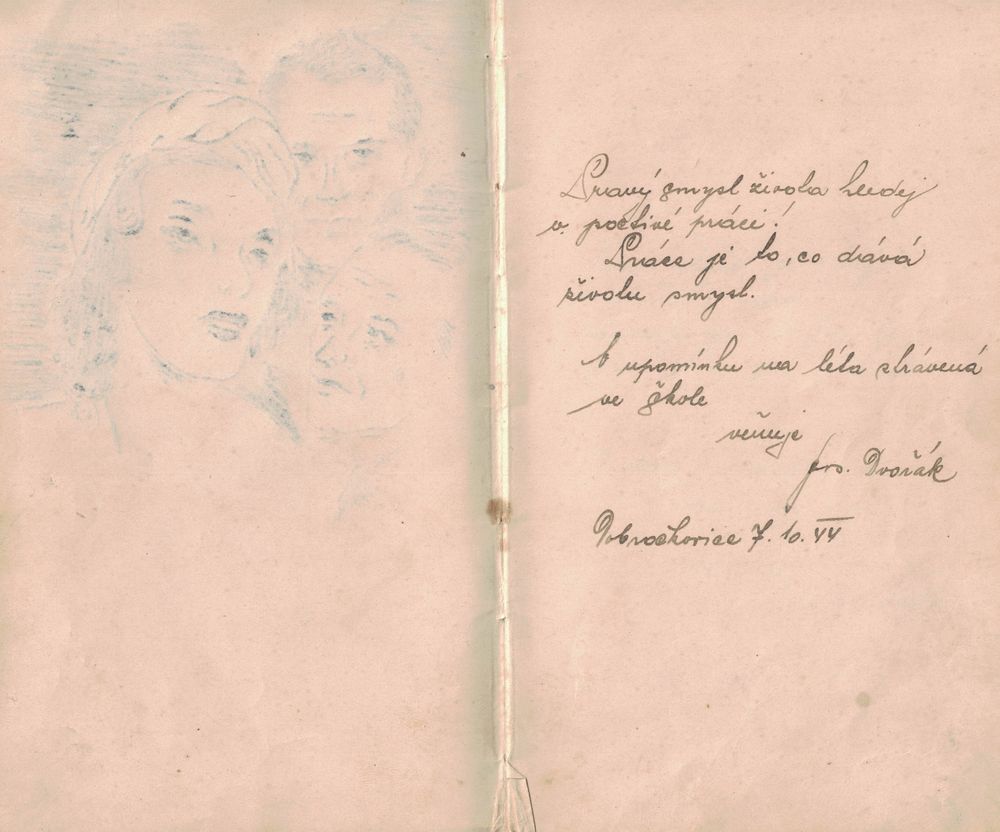 Pravý smysl života hledej
v poctivé práci!
Práce je to, co dává
životu smysl.
K upomínku na léta strávená
ve škole
věnuje
Dvořák
Dobročkovice 7. 10. 44